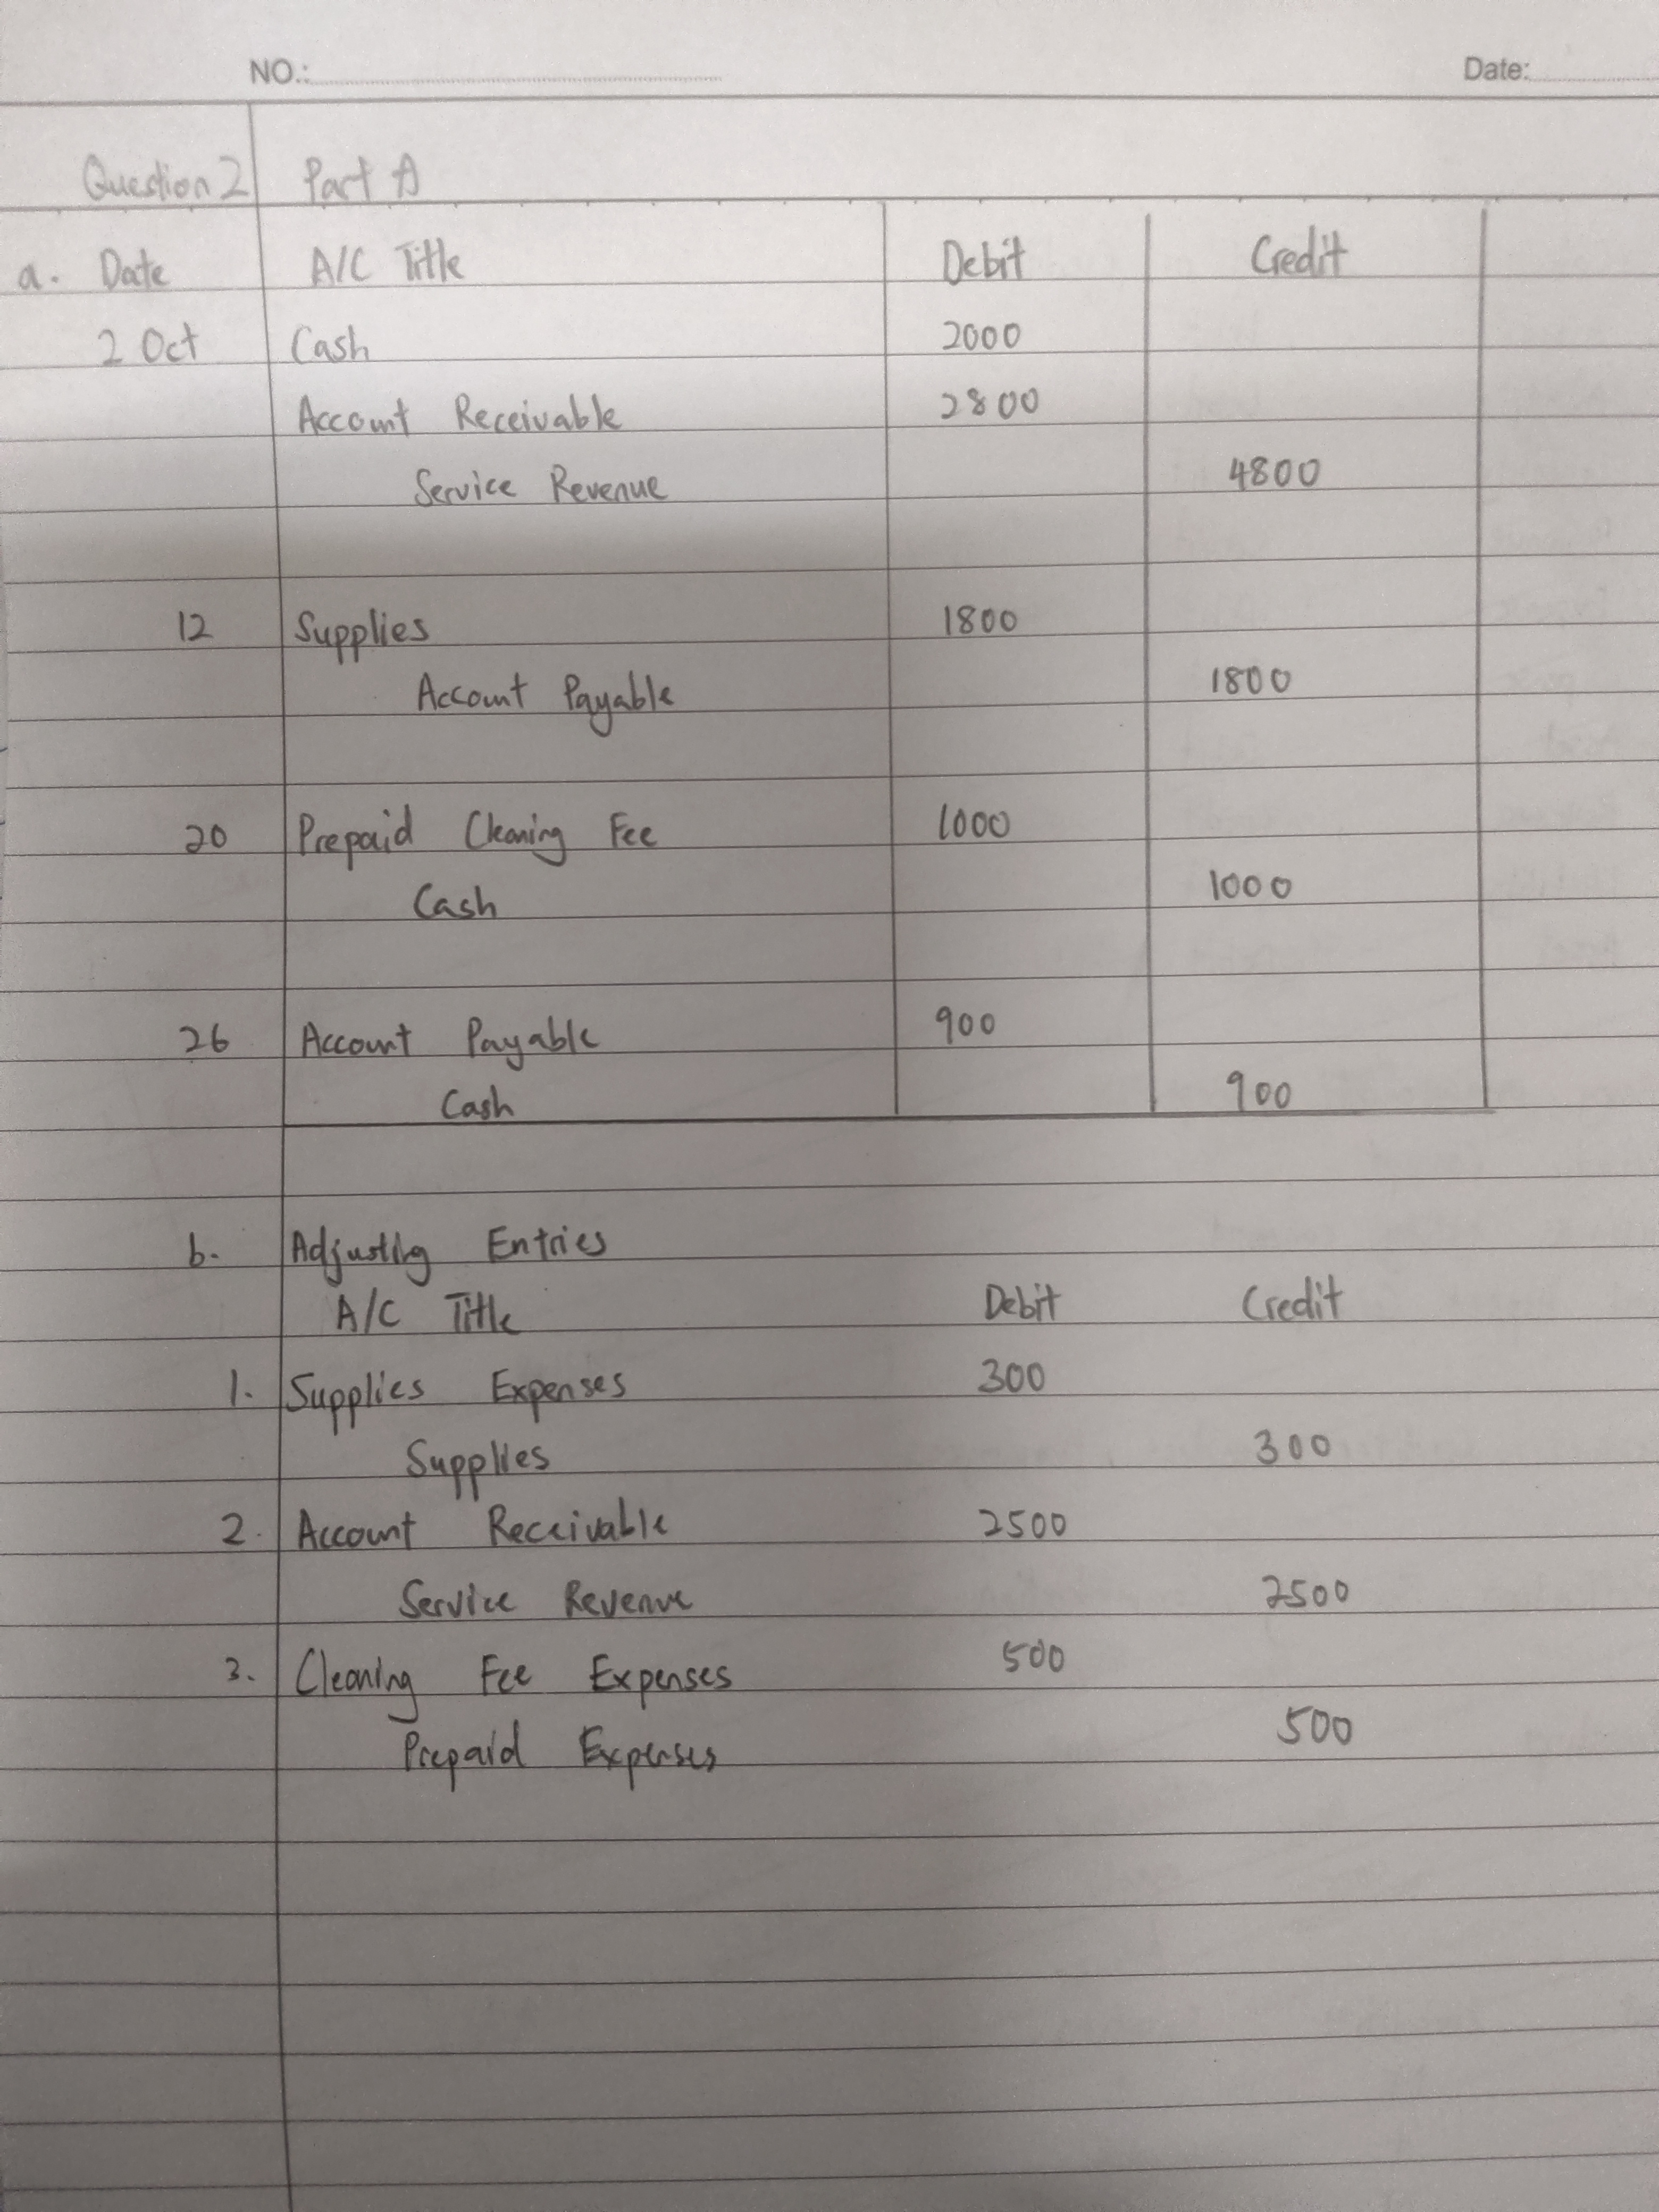 NO.: Date:
Question 2 Part A
a. Date A/C Title Debit Credit
2 Oct Cash 2000
Account Receivable 2800
Service Revenue 4800
12 Supplies 1800
Account Payable 1800
20 Prepaid Cleaning Fee 1000
Cash 1000
26 Account Payable 900
Cash 900
b. Adjusting Entries
A/C Title Debit Credit
1. Supplies Expenses 300
Supplies 300
2. Account Receivable 2500
Service Revenue 2500
3. Cleaning Fee Expenses 500
Prepaid Expenses 500